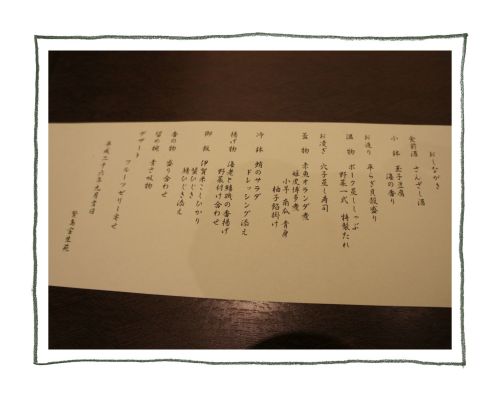 おしながき
食前酒 さんざし酒
小鉢 玉子豆腐
海の香り
お造り 平らぎ貝殻盛り
温物 ポーク蒸ししゃぶ
野菜一式 特製たれ
お凌ぎ 穴子蒸し寿司
蓋物 赤魚オランダ煮
小芋 南瓜 青身
柚子餡掛け
冷鉢 蛸のサラダ
ドレッシング添え
揚げ物 海老と鱚の香揚げ
野菜付け合わせ
御飯 伊賀米こしひかり
鰻ひじき添え
香の物 盛り合わせ
留め椀 青さ吸物
デザート
フルーツゼリー寄せ
平成二十六年九月吉日
賢島宝生苑